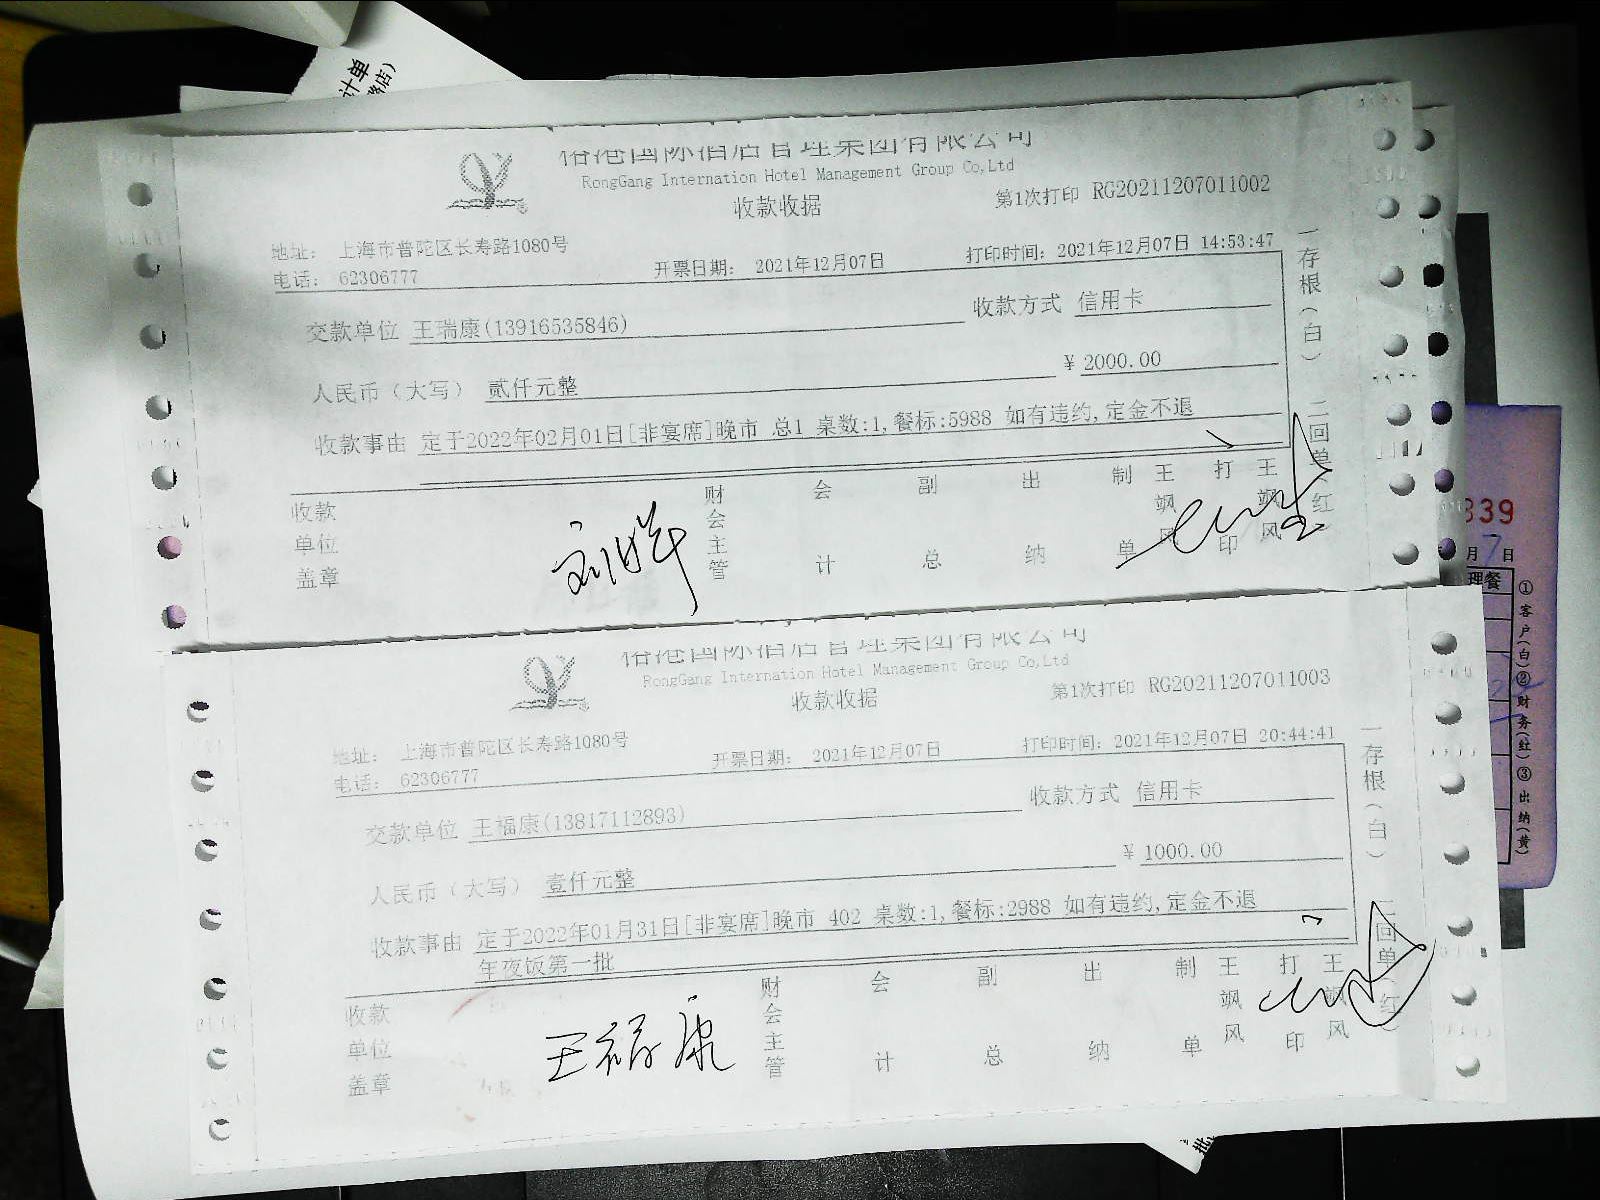 计单
路店）
国际酒店管理集团有限公司
RongGang Internation Hotel Management Group Co,Ltd
收款收据
第1次打印 RG20211207011002
地址： 上海市普陀区长寿路1080号
电话： 62306777
开票日期： 2021年12月07日
打印时间：2021年12月07日 14:53:47
交款单位 王瑞康(13916535846)
收款方式 信用卡
人民币（大写） 贰仟元整
¥ 2000.00
收款事由 定于2022年02月01日[非宴席]晚市 总1 桌数:1,餐标:5988 如有违约,定金不退
收款单位盖章
财会主管
会计
副总
出纳
制单 王飒风
打印 王飒风
一存根（白） 二回单（红）
国际酒店管理集团有限公司
RongGang Internation Hotel Management Group Co,Ltd
收款收据
第1次打印 RG20211207011003
地址： 上海市普陀区长寿路1080号
电话： 62306777
开票日期： 2021年12月07日
打印时间：2021年12月07日 20:44:41
交款单位 王福康(13817112893)
收款方式 信用卡
人民币（大写） 壹仟元整
¥ 1000.00
收款事由 定于2022年01月31日[非宴席]晚市 402 桌数:1,餐标:2988 如有违约,定金不退
年夜饭第一批
收款单位盖章
王福康
财会主管
会计
副总
出纳
制单 王飒风
打印 王飒风
一存根（白） 二回单（红）
339
月7日
理餐
①客户（白）②财务（红）③出纳（黄）